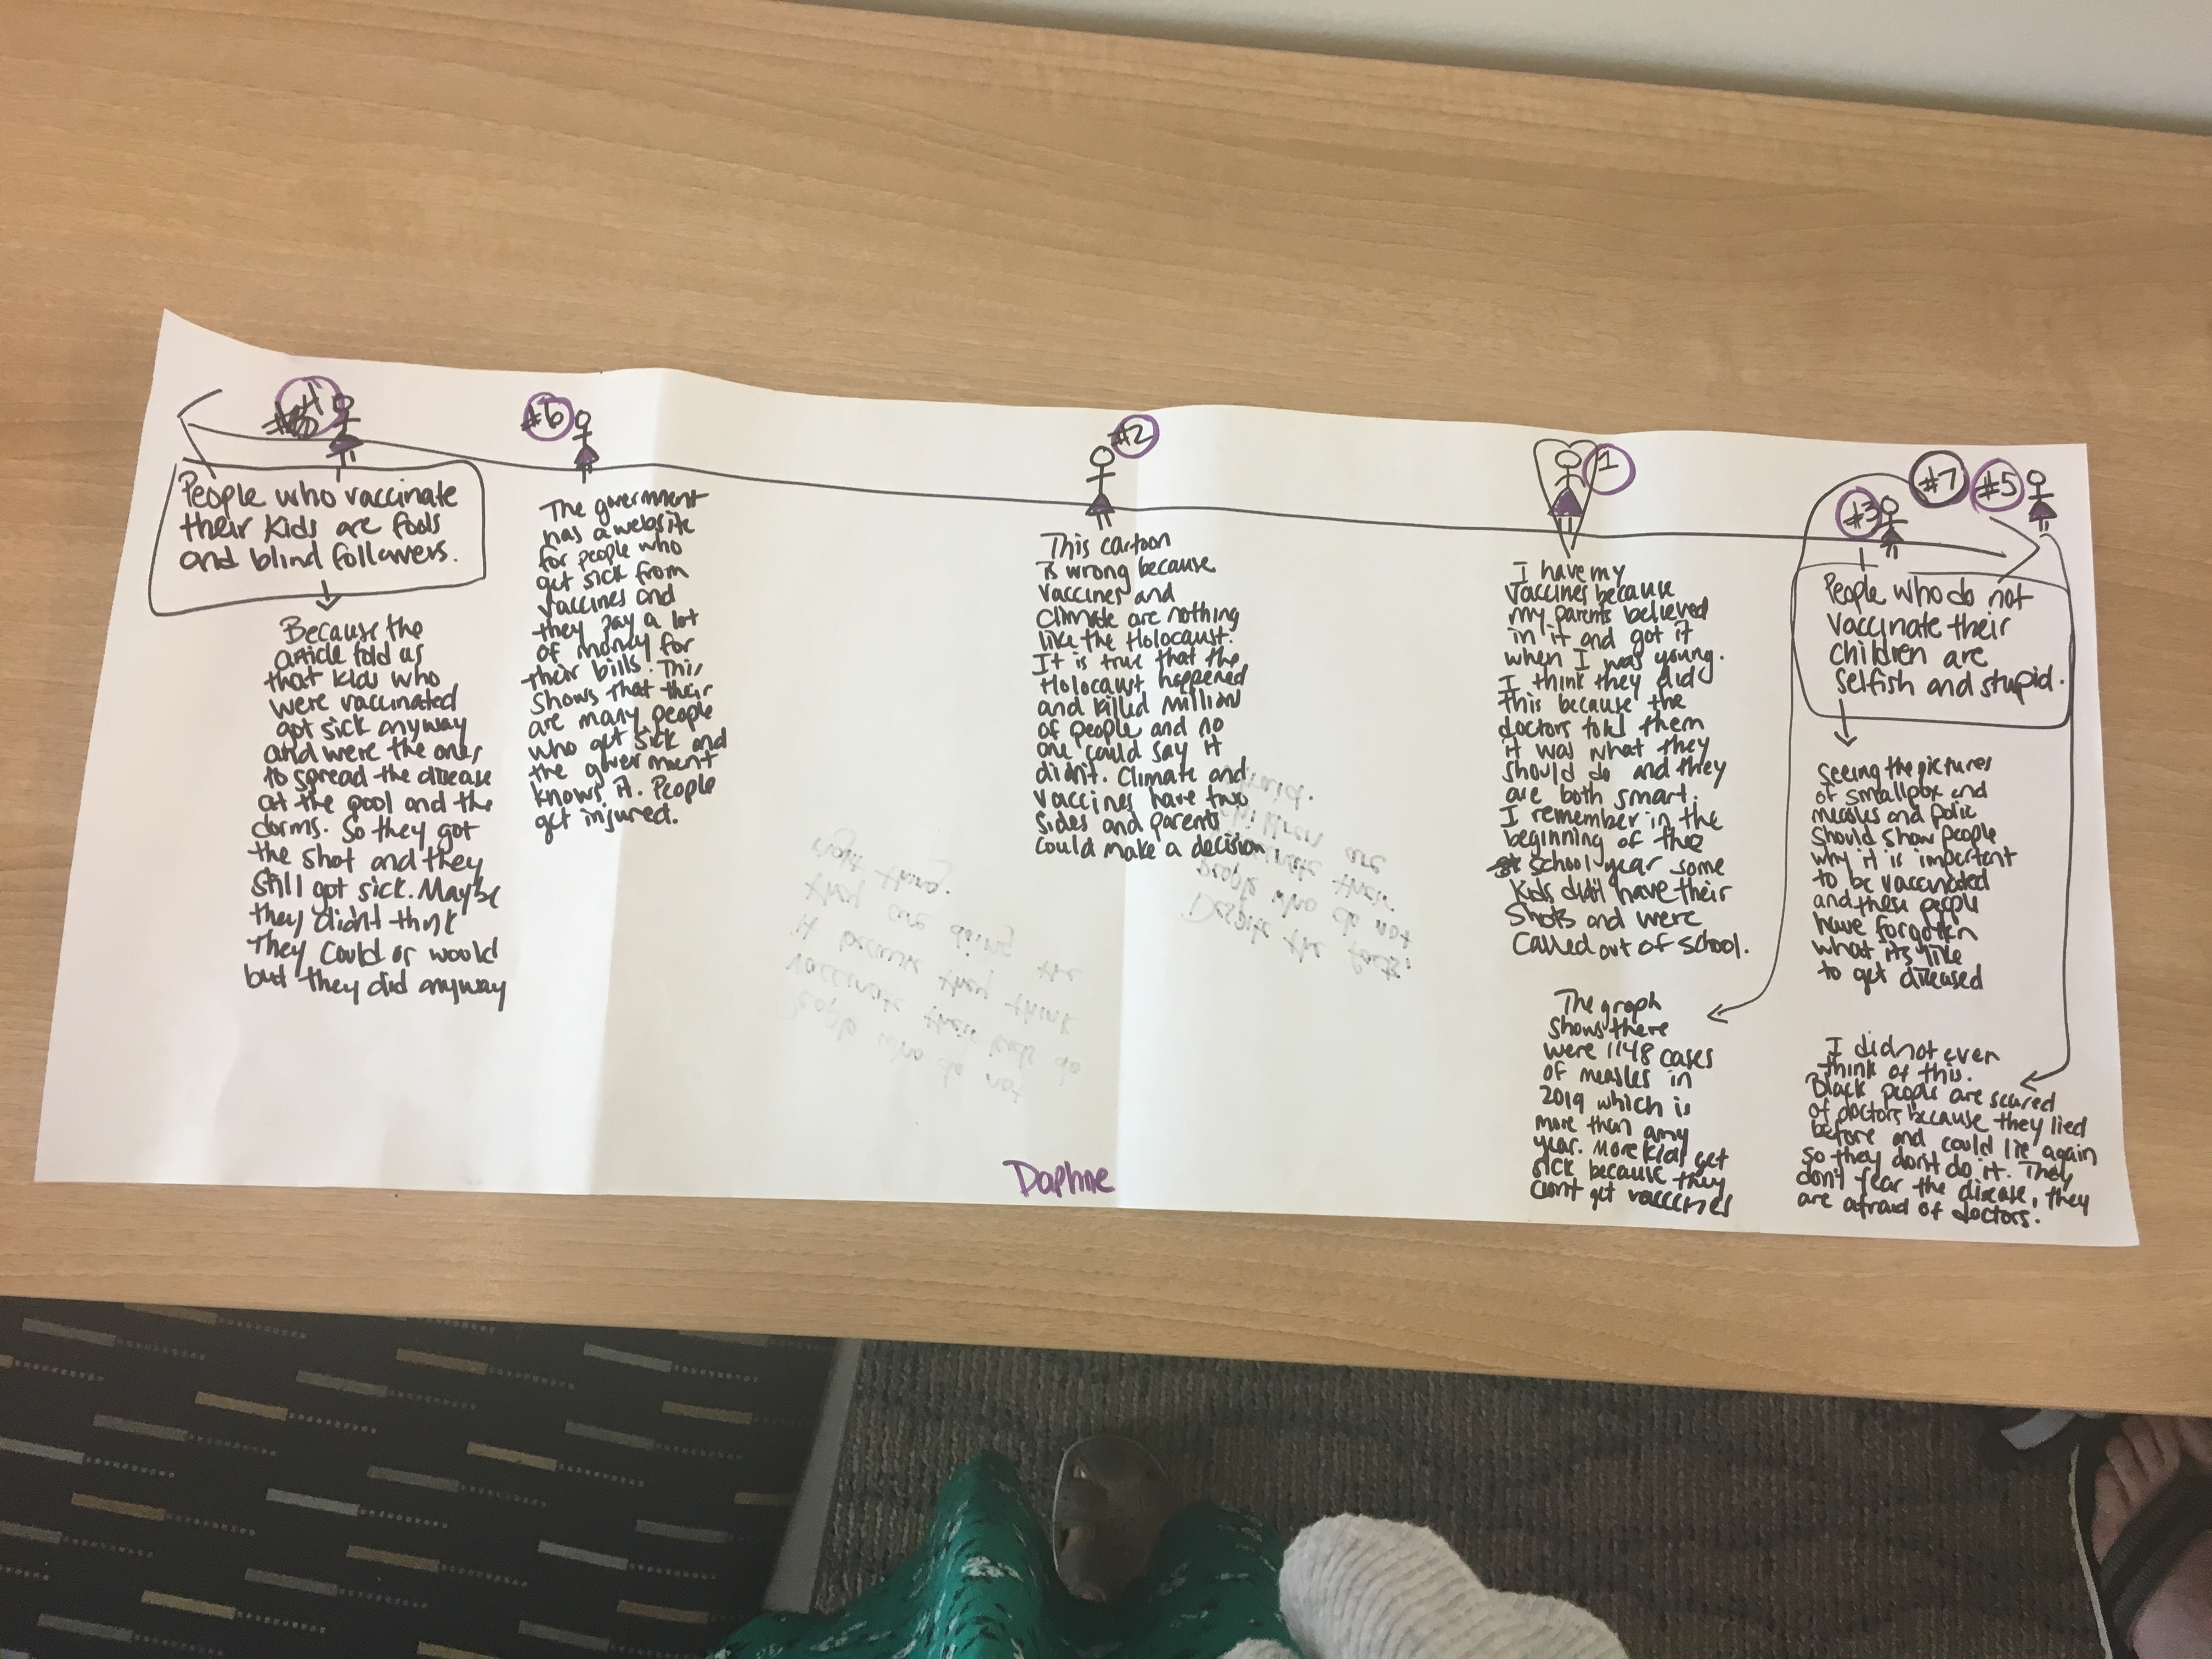 #4
#6
#2
1
#7
#5
#3
People who vaccinate
their kids are fools
and blind followers.
Because the
article told us
that kids who
were vaccinated
got sick anyway
and were the ones
to spread the disease
at the pool and the
dorms. So they got
the shot and they
still got sick. Maybe
they didn't think
They could or would
but they did anyway
The government
has a website
for people who
get sick from
vaccines and
they pay a lot
of money for
their bills. This
shows that their
are many people
who get sick and
the government
knows it. People
get injured.
This cartoon
is wrong because
vaccines and
climate are nothing
like the Holocaust.
It is true that the
Holocaust happened
and killed million
of people and no
one could say it
didn't. Climate and
vaccines have two
sides and parents
could make a decision.
I have my
vaccines because
my parents believed
in it and got it
when I was young.
I think they did
this because the
doctors told them
it was what they
should do and they
are both smart.
I remember in the
beginning of the
school year some
kids didn't have their
shots and were
called out of school.
The graph
shows there
were 1148 cases
of measles in
2019 which is
more than any
year. More kids get
sick because they
don't get vacccines
People who do not
vaccinate their
children are
selfish and stupid.
Seeing the pictures
of smallpox and
measles and polio
should show people
why it is important
to be vaccinated
and these people
have forgotten
what its like
to get diseased
I did not even
think of this.
Black people are scared
of doctors because they lied
before and could lie again
so they don't do it. They
don't fear the disease, they
are afraid of doctors.
People who do not
vaccinate their kids do
it because they think
they are doing the
right thing.
Despite the facts,
people who do not
vaccinate their
children are
Daphne